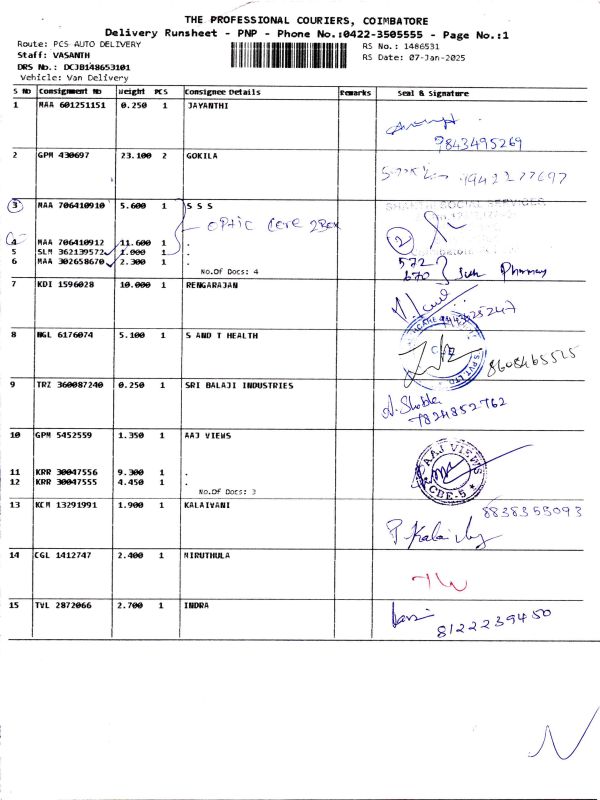 THE PROFESSIONAL COURIERS, COIMBATORE
Delivery Runsheet - PNP - Phone No.:0422-3505555 - Page No.:1
Route: PCS AUTO DELIVERY
RS No.: 1486531
Staff: VASANTH
RS Date: 07-Jan-2025
DRS No.: DCJB148653101
Vehicle: Van Delivery
S No Consignment No Weight PCS Consignee Details Remarks Seal & Signature
1 MAA 601251151 0.250 1 JAYANTHI
9843495269
2 GPM 430697 23.100 2 GOKILA
9942277697
3 MAA 706410910 5.600 1 S S S
SHAKTHI SOCIAL SERVICES
OPtic Core 2Box
2
4 MAA 706410912 11.600 1 .
5 SLM 362139572 1.000 1 .
572
6 MAA 302658670 2.300 1 .
670 } Sun Pharmacy
No.Of Docs: 4
7 KDI 1596028 10.000 1 RENGARAJAN
8 NGL 6176074 5.100 1 S AND T HEALTH
8608465515
9 TRZ 360087240 0.250 1 SRI BALAJI INDUSTRIES
7824852762
10 GPM 5452559 1.350 1 AAJ VIEWS
AAJ VIEWS
CBE-5
11 KRR 30047556 9.300 1 .
12 KRR 30047555 4.450 1 .
No.Of Docs: 3
13 KCM 13291991 1.900 1 KALAIVANI
8838355093
14 CGL 1412747 2.400 1 MIRUTHULA
15 TVL 2872066 2.700 1 INDRA
8122239450